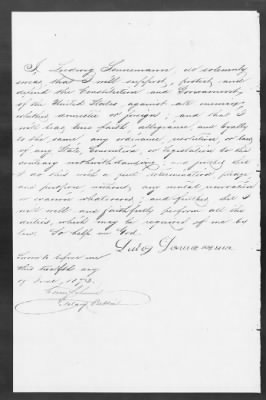 I, Ludwig Sonnemann, do solemnly
swear that I will support, protect, and
defend the Constitution and Government
of the United States, against all enemies,
whether domestic or foreign; and that I
will bear true faith, allegiance, and loyalty
to the same, any ordinance, resolution, or law
of any State, Convention, or Legislation to the
contrary notwithstanding; and further, that
I do this with a full determination, pledge
and purpose, without any mental reservation
or evasion whatsoever; and further, that I
will well and faithfully perform all the
duties, which may be required of me by
law. So help me God.
Sworn to before me
this twelfth day
of
Notary Public